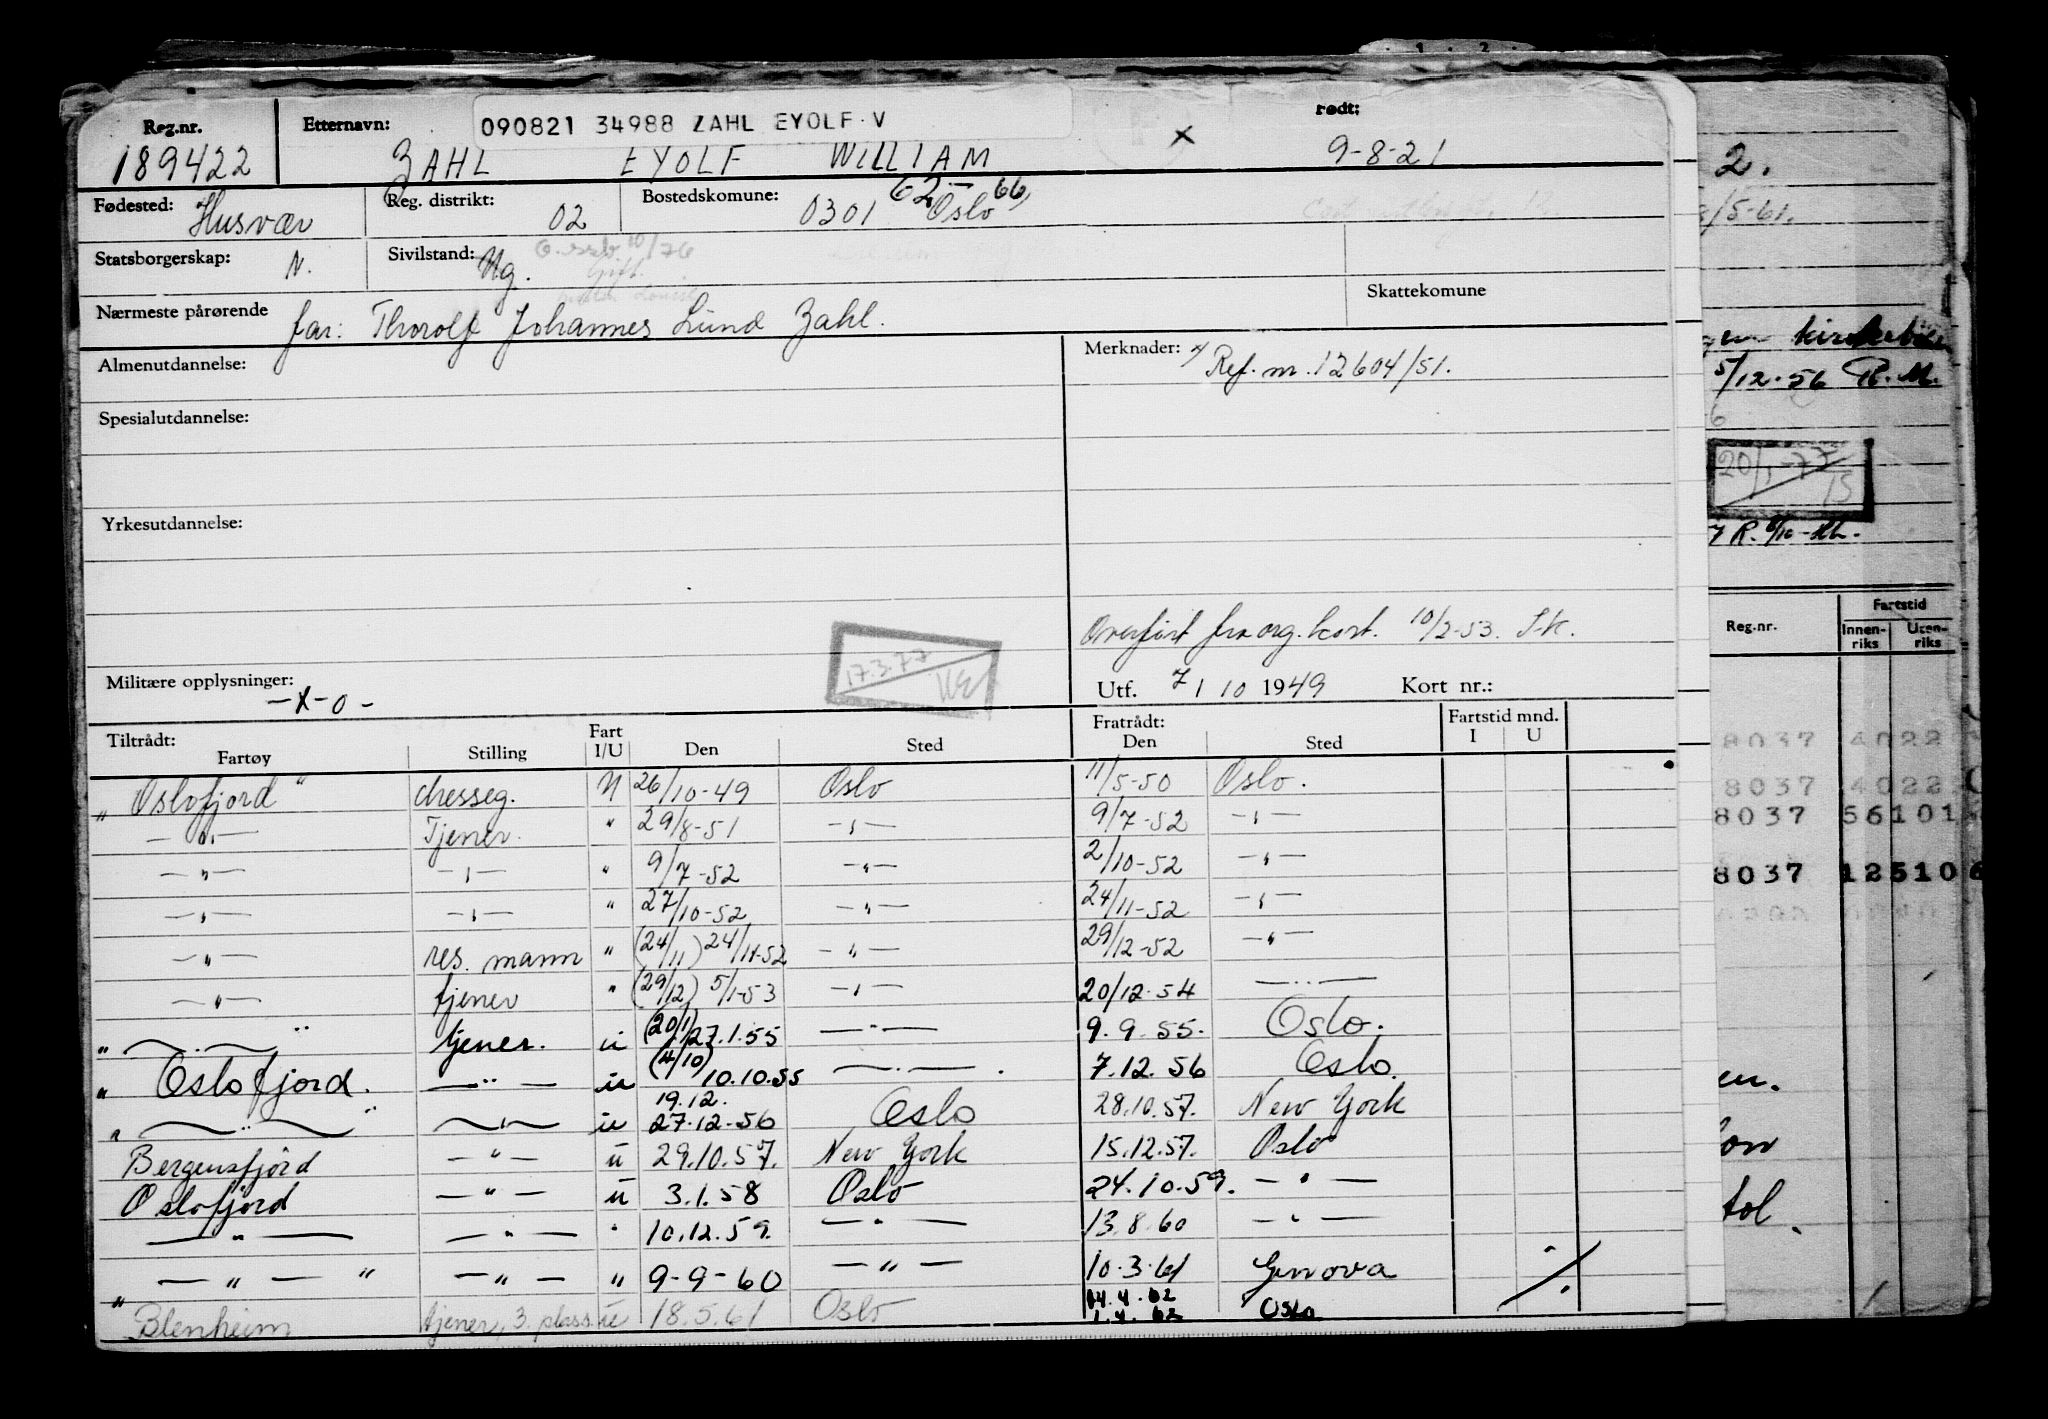 Reg.nr. Etternavn: 090821 34988 ZAHL EYOLF V Født:
189422 ZAHL EYOLF WILLIAM x 9-8-21
Fødested: Husvær Reg. distrikt: 02 Bostedskomune: 0301 Oslo 62- 66,
Statsborgerskap: N. Sivilstand: Ug. Gift. 10/76
Nærmeste pårørende far: Thorolf Johannes Lund Zahl. Skattekomune
Almenutdannelse: Merknader: x/ Ref. nr. 12604/51.
Spesialutdannelse:
Yrkesutdannelse:
Overført fra org. kort. 10/2-53. S.k.
17.3.77
Militære opplysninger: -x-o- Utf. 7/10 1949 Kort nr.:
Tiltrådt: Fart Fratrådt: Fartstid mnd.
Fartøy Stilling I/U Den Sted Den Sted I U
"Oslofjord" messeg. U 26/10-49 Oslo 11/5-50 Oslo.
-"- Tjener. " 29/8-51 -"- 9/7-52 -"-
-"- -"- " 9/7-52 -"- 2/10-52 -"-
-"- -"- " 27/10-52 -"- 24/11-52 -"-
-"- res. mann " (24/11) 24/11-52 -"- 29/12-52 -"-
-"- tjener " (29/12) 5/1-53 -"- 20/12-54 -"-
" -"- " tjener. u (20/1) 27.1.55 -"- 9.9.55. Oslo.
" Oslofjord. -"- u (4/10) 10.10.55 -"-. 7.12.56 Oslo.
" -"- " -"- u 19.12. 27.12-56 Oslo 28.10.57. New York
Bergensfjord -"- u 29.10.57. New York 15.12.57. Oslo
Oslofjord -"- u 3.1.58 Oslo 24.10.59. -"-
-"- -"- " 10.12.59. -"- 13.8.60 -"-
" -"- " -"- " 9-9-60 -"- 10.3.61 Genova
Blenheim tjener, 3. plass u 18.5.61 Oslo 14.4.62 1.4.62 Oslo
2.
/5-61.
5/12-56 R.M.
20/1-77
15
7 R. 6/10-
Reg.nr. Fartstid
Innen-riks Uten-riks
8037 4022
8037 4022
8037 56101
8037 12510
en.
on
tol.